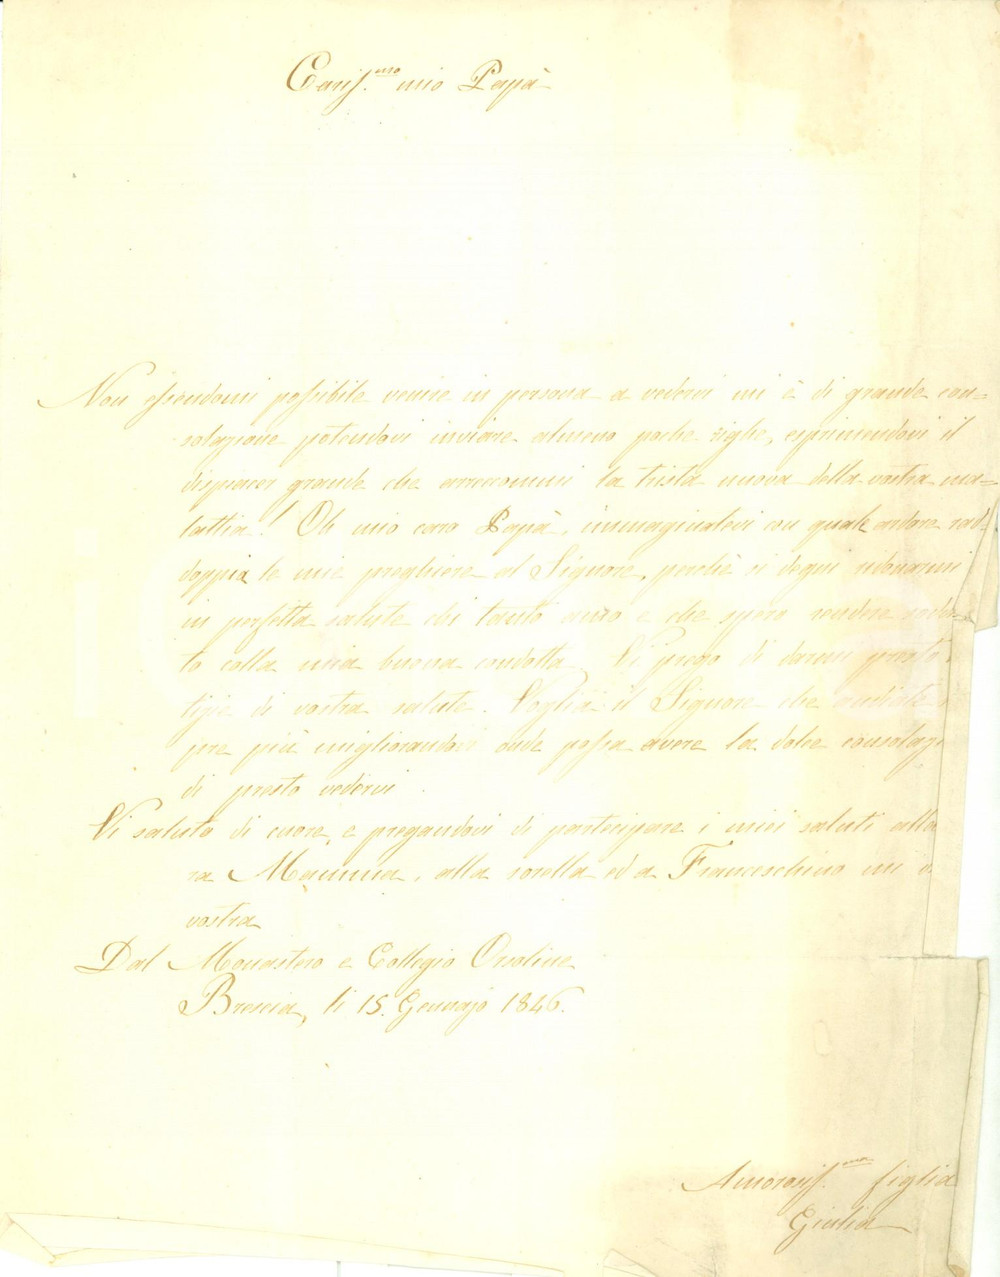 Cariss.mo mio Papà
Non essendomi possibile venire in persona a vedervi mi è di grande con-
solazione potendovi inviare almeno poche righe, esprimendovi il
dispiacer grande che arreccommi la trista nuova della vostra ma-
lattia! Oh mio caro Papà, immaginatevi con quale ardore rad-
doppia le mie preghiere al Signore, perchè si degni ridonarmi
in perfetta salute chi tanto amo e che spero rendere
to colla mia buona condotta. Vi prego di darmi presto
tizie di vostra salute. Voglia il Signore che andiate
pre più migliorandovi onde possa avere la dolce consolaz
di presto vedervi.
Vi saluto di cuore, e pregandovi di partecipare i miei saluti alla
ra Mamma, alla sorella ed a Franceschino mi
vostra
Dal Monastero e Collegio Orsoline
Brescia, li 15. Gennajo 1846.
Amorosiss.ma figlia
Giulia